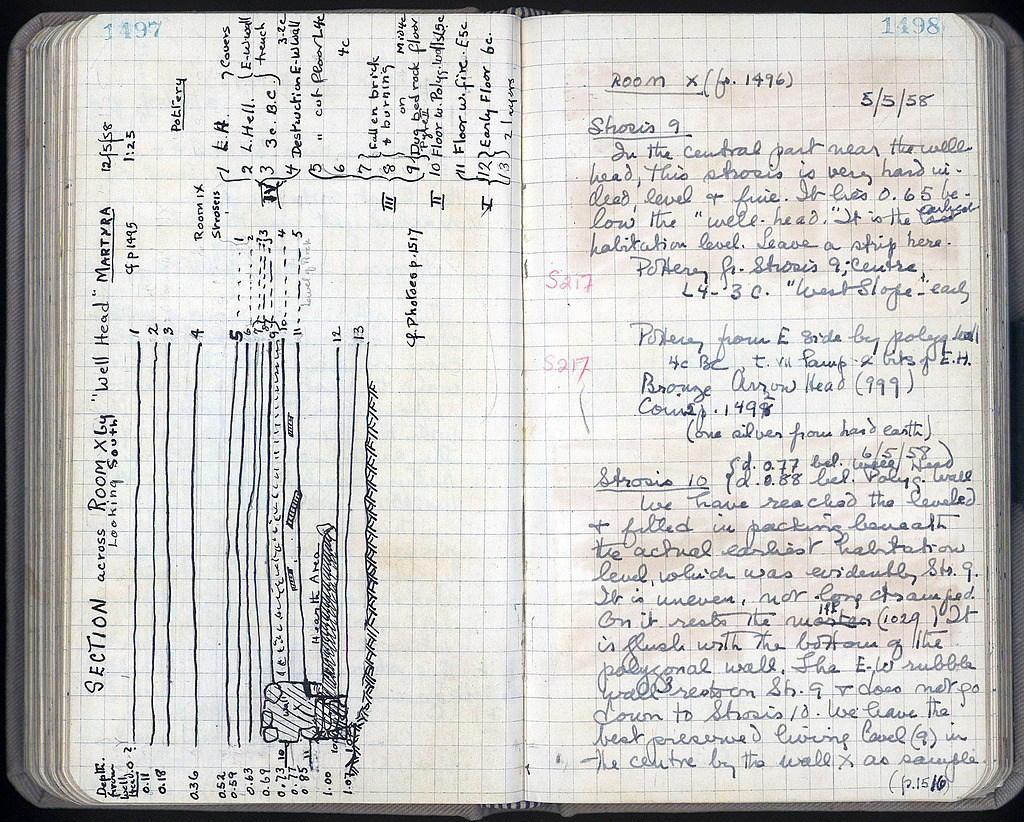 1497
SECTION across Room X by "Well Head" MARTYRA 12/5/58
Looking South cf p 1495 1:25
Pottery
Room IX
Stroseis
1 E.H. } Covers
2 L. Hell. { E-W wall
3 3 c. B.C. } trench
IV
4 Destruction E-W Wall 3-2c
5 " cut floor L4c
6 4c
7 { Fallen brick
8 & burning
III
9 Dug bedrock floor Mid 4c
on
II
10 Floor w. Polyg. walls L5c
11 Floor w. fire. E5c
I
12 } Early Floor 6c.
13 } 2 layers
cf. Photoes p. 1517
1
2
3
4
5
6
7
8
9
10
11
12
13
1
2
3
4
5
Hearth Area
wall X
Depth
from
Well
Head
0.11
0.18
0.36
0.52
0.59
0.63
0.69
0.73
0.77
0.85
1.00
1.07
1498
Room X (fr. p. 1496)
5/5/58
Strosis 9
In the central part near the well
head, this strosis is very hard in-
deed, level & fine. It lies 0.65 be-
low the "well-head." It is the earliest
habitation level. Leave a strip here.
Pottery fr. Strosis 9; centre,
S217
L4-3 c. "West Slope" early
Pottery from E side by polyg wall
S217
4c BC, t. VII lamp - 2 bits of E.H.
Bronze Arrow Head (999)
Coins p. 1498
(one silver from hard earth)
6/5/58
{d. 0.77 bel. Well Head
Strosis 10 {d. 0.88 bel. Polyg. Wall
We have reached the leveled
& filled in packing beneath
the actual earliest habitation
level, which was evidently Str. 9.
It is uneven, not long stamped.
On it rests the (1029) It
is flush with the bottom of the
polygonal wall. The E-W rubble
wall 3 rests on Str. 9 & does not go
down to Strosis 10. We have the
best preserved living level (9) in
the centre by the wall X as sample.
(p. 1516)